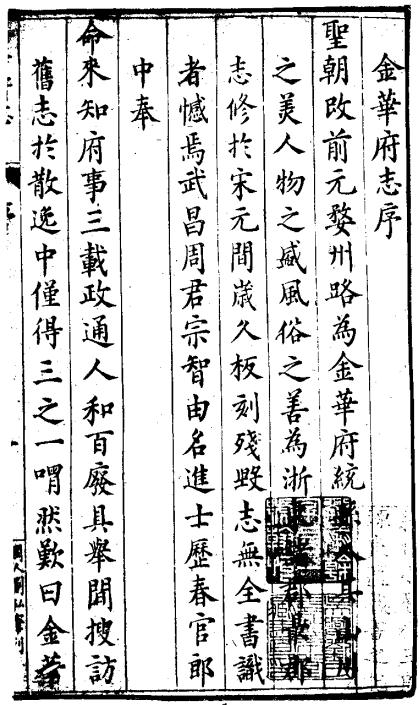 金華府志序
聖朝改前元婺州路為金華府統縣八其山川
之美人物之盛風俗之善為浙
志修於宋元間歲久板刻殘毀志無全書識
者憾焉武昌周君宗智由名進士歷春官郎
中奉
命來知府事三載政通人和百廢具舉間搜訪
舊志於散逸中僅得三之一喟然歎曰金華